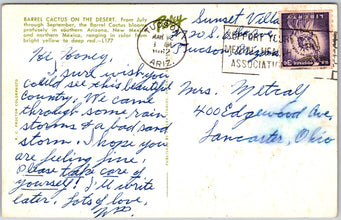 BARREL CACTUS ON THE DESERT. From July
through September, the Barrel Cactus blooms
profusely in southern Arizona, New Mexico
and northern Mexico, ranging in color from
bright yellow to deep red.—L177
Sunset Villa
Tucson
TUCSON
ARIZ.
SUPPORT YOUR
MENTAL HEALTH
ASSOCIATION
3¢
Hi Honey,
I sure wish you
could see this beautiful
country. We came
through some rain
storms & a bad sand
storm. I hope you
are feeling fine.
Please take care of
yourself! I'll write
later. Lots of love,
Mrs. Metcalf
400 Edgewood Ave,
Lancaster, Ohio